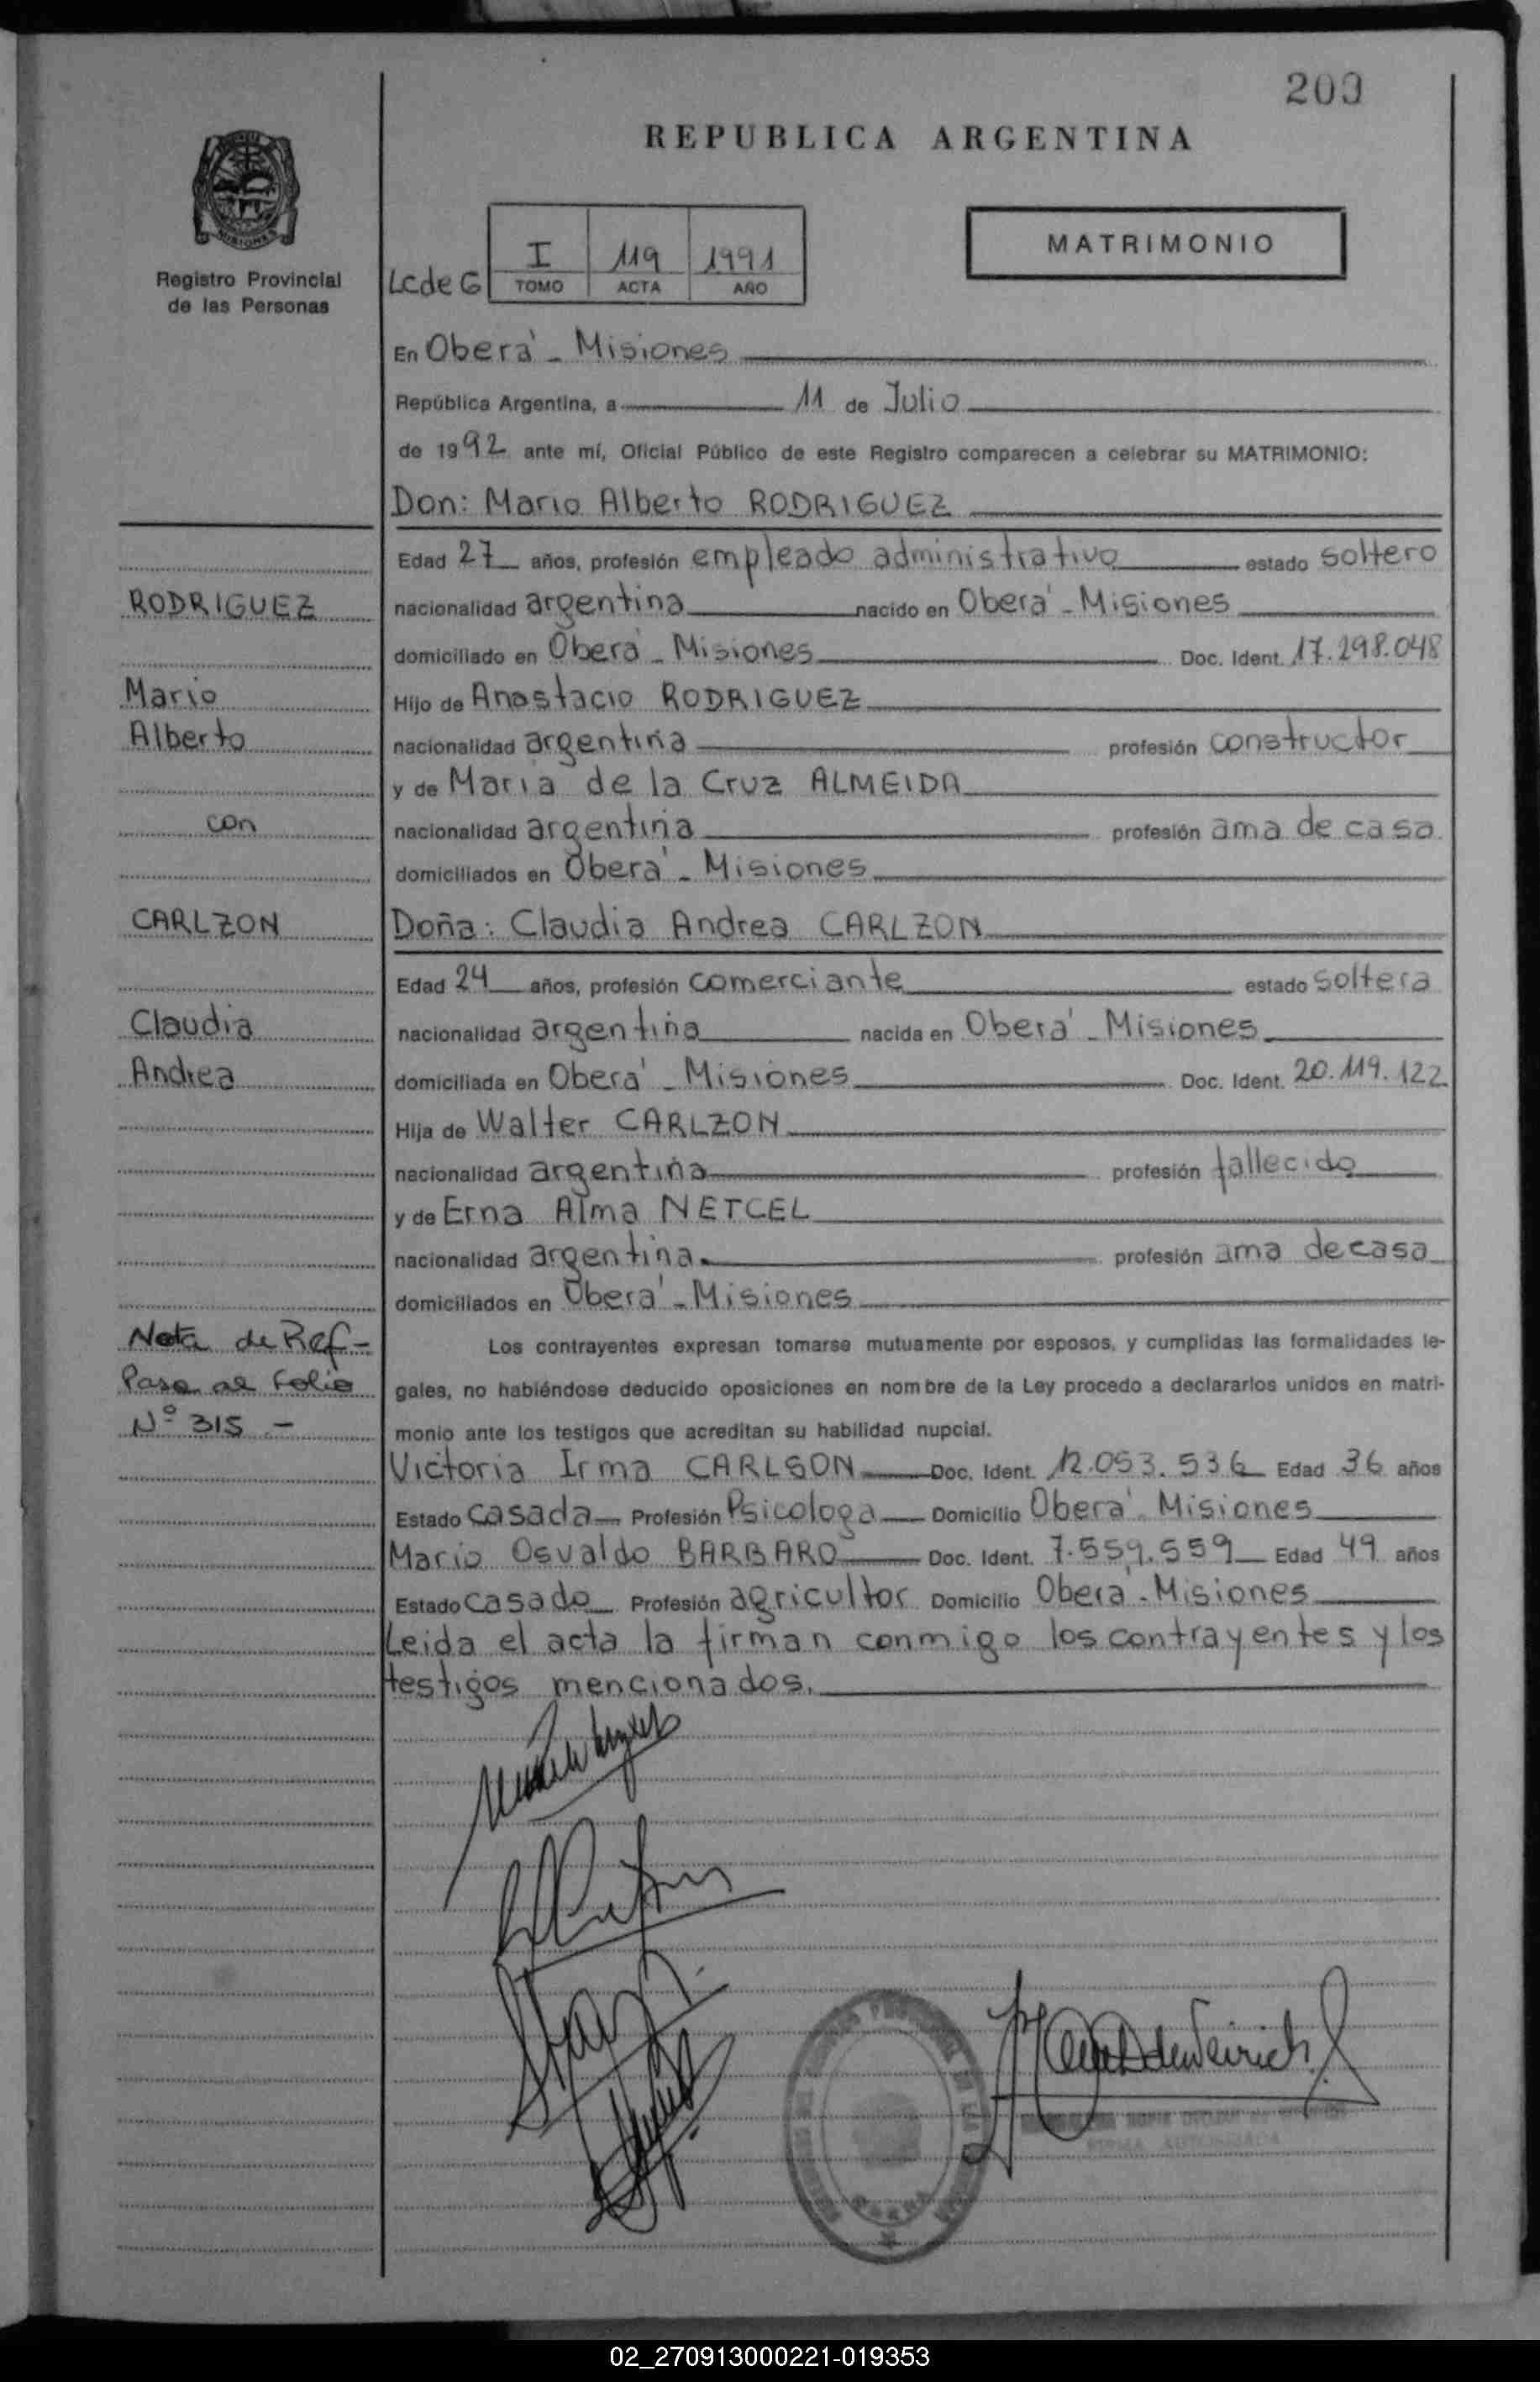 209
REPUBLICA ARGENTINA
MISIONES
Registro Provincial
de las Personas
Lc de G
I 119 1991
TOMO ACTA AÑO
MATRIMONIO
En Oberá - Misiones
República Argentina, a 11 de Julio
de 1992 ante mí, Oficial Público de este Registro comparecen a celebrar su MATRIMONIO:
Don: Mario Alberto RODRIGUEZ
Edad 27 años, profesión empleado administrativo estado soltero
RODRIGUEZ
nacionalidad argentina nacido en Oberá - Misiones
domiciliado en Oberá - Misiones Doc. Ident. 17.298.048
Mario
Hijo de Anastacio RODRIGUEZ
Alberto
nacionalidad argentina profesión constructor
y de Maria de la Cruz ALMEIDA
con
nacionalidad argentina profesión ama de casa
domiciliados en Oberá - Misiones
CARLZON
Doña: Claudia Andrea CARLZON
Edad 24 años, profesión comerciante estado soltera
Claudia
nacionalidad argentina nacida en Oberá - Misiones
Andrea
domiciliada en Oberá - Misiones Doc. Ident. 20.119.122
Hija de Walter CARLZON
nacionalidad argentina profesión fallecido
y de Erna Alma NETCEL
nacionalidad argentina profesión ama de casa
domiciliados en Oberá - Misiones
Nota de Ref -
Pasa al Folio
Nº 315 -
Los contrayentes expresan tomarse mutuamente por esposos, y cumplidas las formalidades le-
gales, no habiéndose deducido oposiciones en nombre de la Ley procedo a declararlos unidos en matri-
monio ante los testigos que acreditan su habilidad nupcial.
Victoria Irma CARLSON Doc. Ident. 12.053.536 Edad 36 años
Estado Casada Profesión Psicologa Domicilio Oberá - Misiones
Mario Osvaldo BARBARO Doc. Ident. 7.559.559 Edad 49 años
Estado Casado Profesión agricultor Domicilio Oberá - Misiones
Leida el acta la firman conmigo los contrayentes y los
testigos mencionados.
02_270913000221-019353